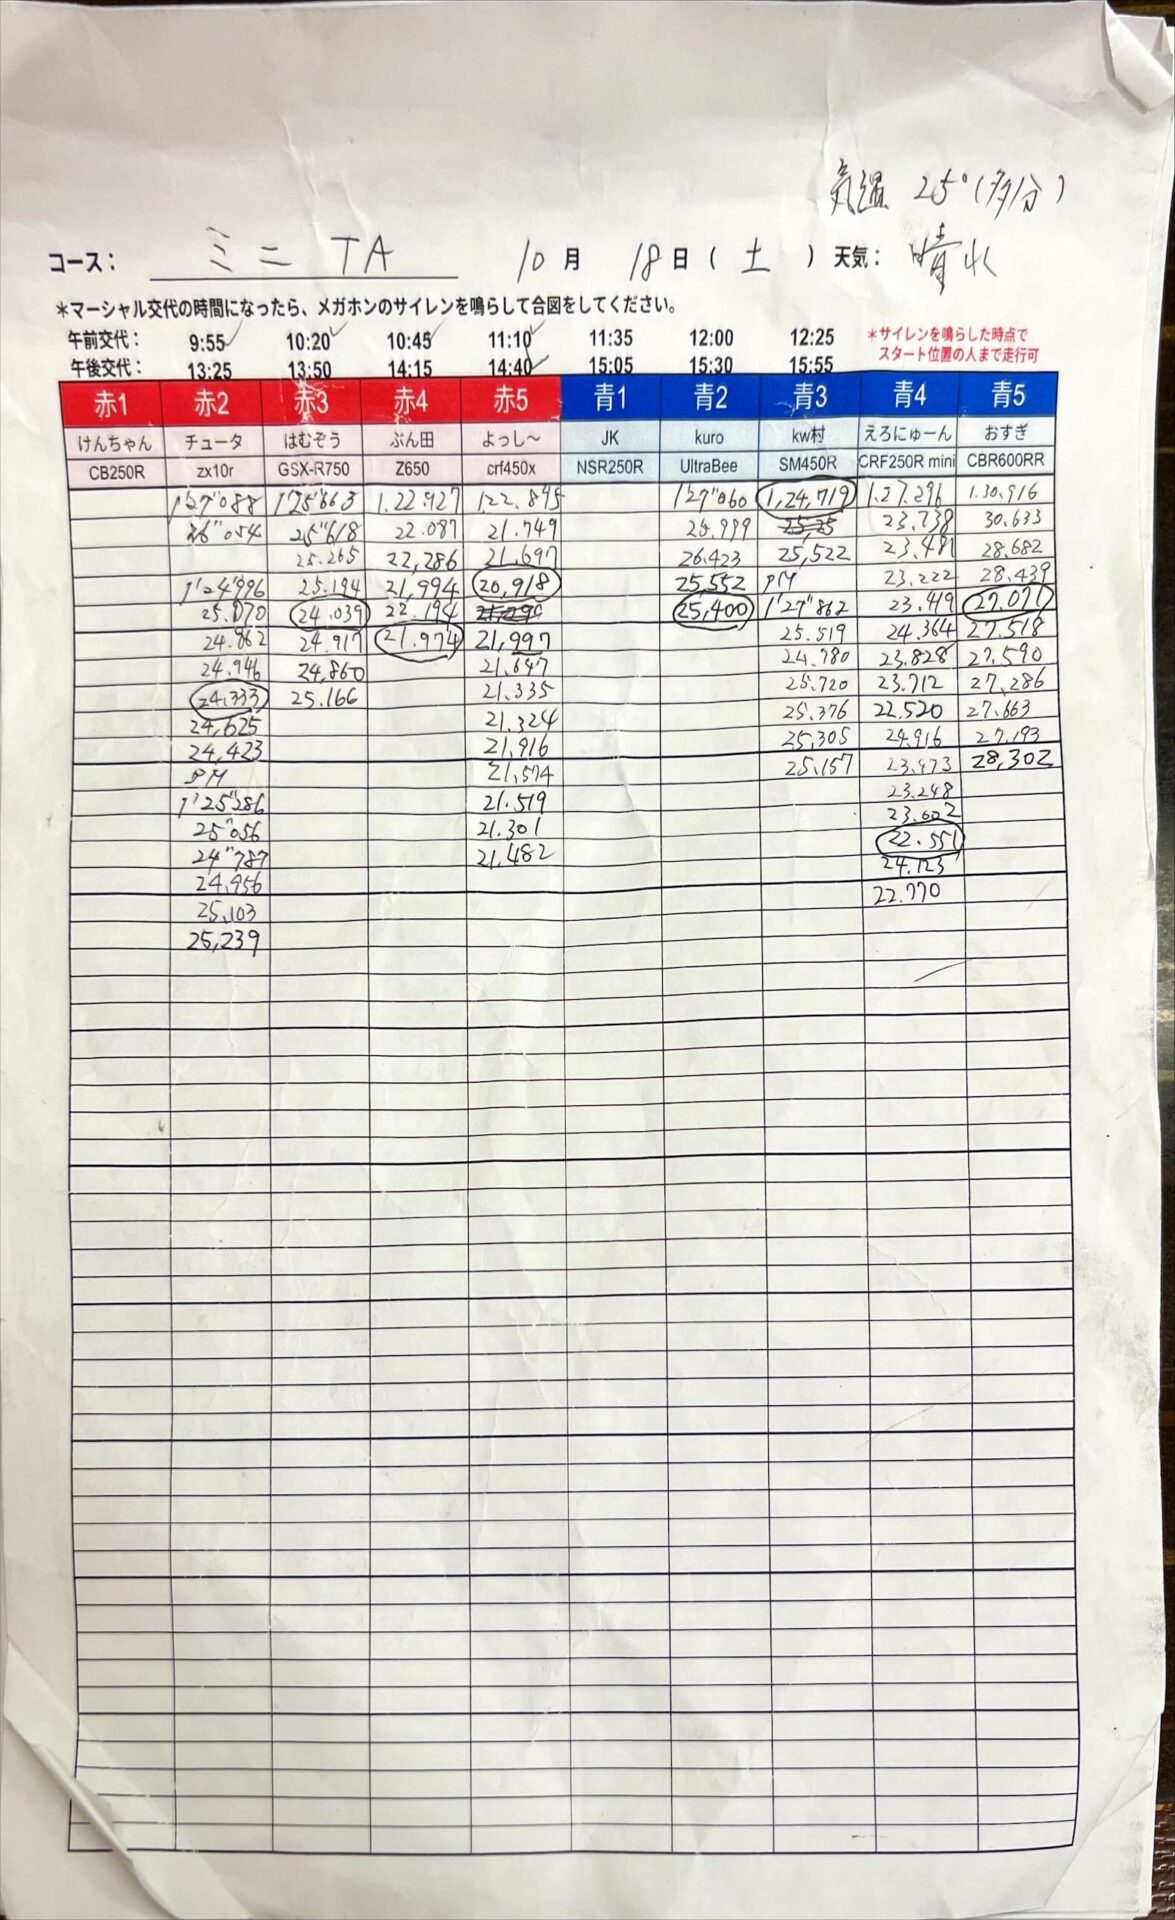 気温 25°(多分)
コース: ミニ TA 10月 18日(土) 天気: 晴れ
*マーシャル交代の時間になったら、メガホンのサイレンを鳴らして合図をしてください。
午前交代: 9:55 10:20 10:45 11:10 11:35 12:00 12:25 *サイレンを鳴らした時点で
午後交代: 13:25 13:50 14:15 14:40 15:05 15:30 15:55 スタート位置の人まで走行可
赤1 赤2 赤3 赤4 赤5 青1 青2 青3 青4 青5
けんちゃん チュータ はむぞう ぶん田 よっし~ JK kuro kw村 えろにゅーん おすぎ
CB250R zx10r GSX-R750 Z650 crf450x NSR250R UltraBee SM450R CRF250R mini CBR600RR
1'27"088 1'25"663 1.22.927 1.22.895 1'27"060 1,24,719 1.27.296 1.30.916
26"054 25"618 22.087 21.749 25.999 23.738 30.633
25.265 22,286 21.697 26.423 25,522 23.481 28.682
1'24"996 25.194 21,994 20,918 25,552 PM 23.222 28.439
25.070 24.039 22.194 25,400 1'27"862 23.419 27.071
24.862 24.917 21.974 21,997 25.519 24.364 27.518
24.946 24,860 21.647 24.780 23.828 27.590
24.333 25.166 21.335 25.720 23.712 27,286
24,625 21.324 25.376 22.520 27.663
24,423 21,916 25,305 24.916 27,193
PM 21,574 25.157 23.473 28,302
1'25"286 21.519 23.248
25"056 21.301 23.602
24"787 21,482 22.551
24,956 24.123
25,103 22.770
25,239